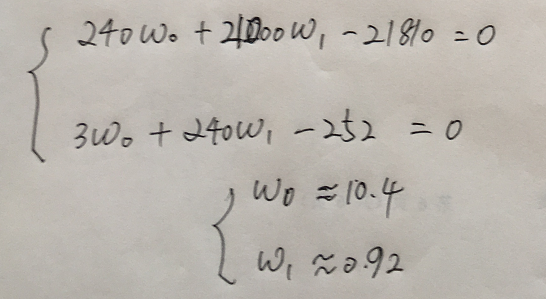 240w₀ + 21000w₁ - 21810 = 0
3w₀ + 240w₁ - 252 = 0
w₀ ≈ 10.4
w₁ ≈ 0.92